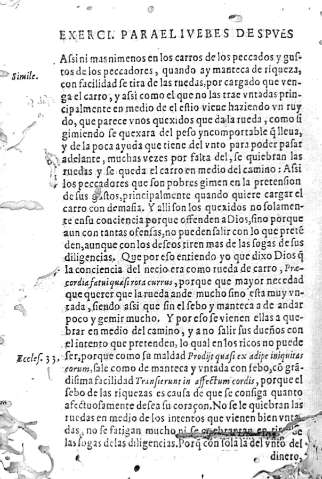 EXERCI. PARA EL IVEBES DESPVES
Assi ni mas ni menos en los carros de los peccados y gus-
Simile. tos de los peccadores, quando ay manteca de riqueza,
con facilidad se tira de las ruedas, por cargado que ven-
ga el carro, y assi como el que no las trae vntadas prin-
cipalmente en medio de el estio viene haziendo vn ruy
do, que parece vnos quexidos que da la rueda, como si
gimiendo se quexara del peso yncomportable q̃ lleua,
y de la poca ayuda que tiene del vnto para poder pasar
adelante, muchas vezes por falta del, se quiebran las
ruedas y se queda el carro en medio del camino: Assi
los peccadores que son pobres gimen en la pretension
de sus gustos, principalmente quando quiere cargar el
carro con demasia. Y alli son los quexidos no solamen-
te en su conciencia porque offenden a Dios, sino porque
aun con tantas ofensas, no pueden salir con lo que prete
den, aunque con los deseos tiren mas de las sogas de sus
diligencias. Que por eso entiendo yo que dixo Dios q̃
la conciencia del necio era como rueda de carro, Præ-
cordia fatui quasi rota currus, porque que mayor necedad
que querer que la rueda ande mucho sino esta muy vn-
tada, siendo assi que sin el sebo y manteca a de andar
poco y gemir mucho. Y por eso se vienen ellas a que-
brar en medio del camino, y a no salir sus dueños con
el intento que pretenden, lo qual en los ricos no puede
Eccles. 33, ser, porque como su maldad Prodijt quasi ex adipe iniquitas
eorum, sale como de manteca y vntada con sebo, cõ grã
disima facilidad Transierunt in affectum cordis, porque el
sebo de las riquezas es causa de que se consiga quanto
afectuosamente desea su coraçon. No se le quiebran las
ruedas en medio de los intentos que vienen bien vnta-
das, no se fatigan mucho ni se quebrantan en tirar de
las sogas de las diligencias. Porq̃ con sola la del vnto del
dinero,